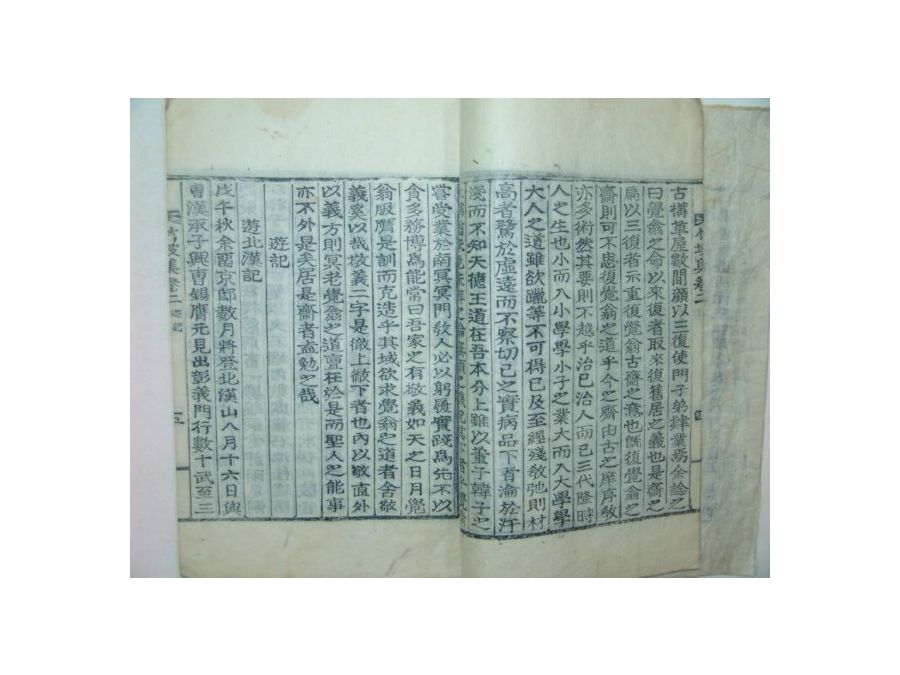 竹坡集卷二
古構草屋數間顏以三復使門子弟肄業焉余諗之
曰覺翁之命以來復者取來復舊居之義也是齋之
扁以三復者示重復覺翁古齋之意也旣復覺翁之
齋則可不思復覺翁之道乎今之齋由古之庠序敎
亦多術然其要則不越乎治己治人而已三代隆時
人之生也小而入小學學小子之業大而入大學學
大人之道雖欲躐等不可得已及至經殘敎弛則材
高者騖於虛遠而不察切己之實病品下者淪於汙
淺而不知天德王道在吾本分上雖以董子韓子之
嘗受業於南冥門敎人必以躬履實踐爲先不以
貪多務博爲能當曰吾家之有敬義如天之日月覺
翁服膺是訓而克造乎其域欲求覺翁之道者舍敬
義奚以哉敬義二字是徹上徹下者也內以敬直外
以義方則冥老覺翁之道亶在於是而聖人之能事
亦不外是矣居是齋者盍勉之哉
遊記
遊北漢記
戊午秋余寓京邸數月將登北漢山八月十六日與
曺漢承子興曺錫膺元見出彰義門行數十武至三
竹坡集卷二 遊記 五